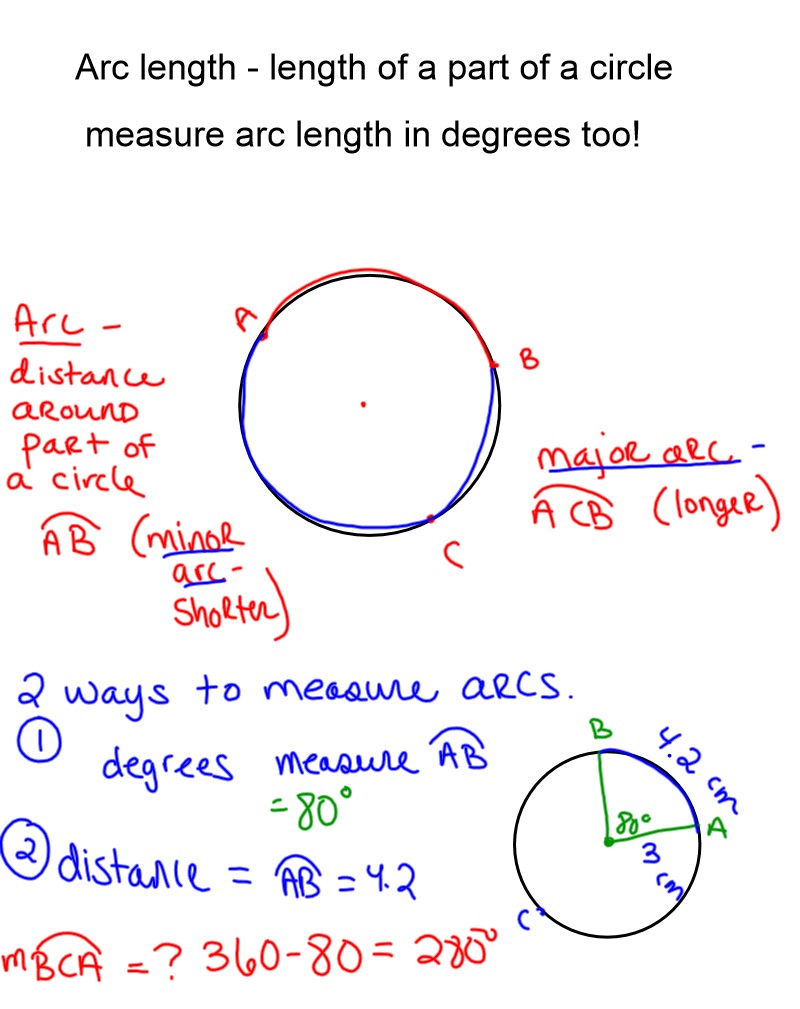 Arc length - length of a part of a circle
measure arc length in degrees too!
Arc -
distance
around
part of
a circle
AB (minor
arc -
shorter)
A
B
C
major arc -
ACB (longer)
2 ways to measure arcs.
1
degrees measure AB
= 80°
2 distance = AB = 4.2
mBCA = ? 360-80 = 280°
B
4.2 cm
80°
A
3 cm
C